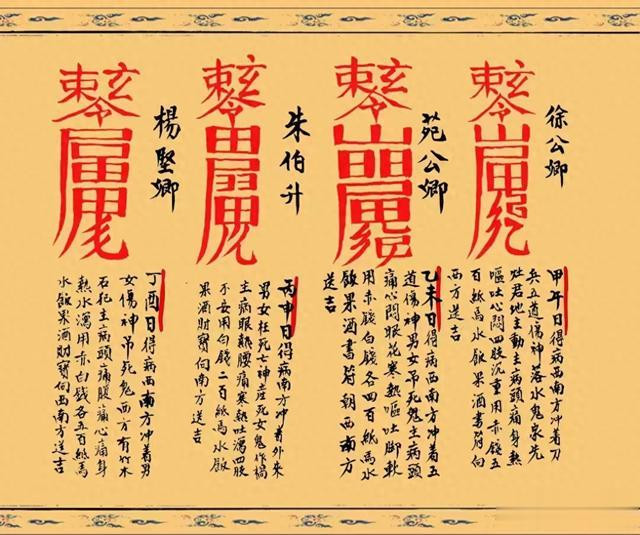 徐公卿
甲午日得病西南方冲着刀
兵五道傷神落水鬼家先
灶君地主動主病頭痛身熱
嘔吐心悶四肢沉重用赤錢五
百紙馬水飯果酒書符向
西方送吉
苑公卿
乙未日得病西南方冲着五
道傷神男女吊死鬼主病頭
痛心悶眼花寒熱嘔吐脚軟
用赤錢白錢各四百紙馬水
飯果酒書符朝西南方
送吉
朱伯升
丙申日得病南方冲着外來
男女枉死亡神產死女鬼作禍
主病眼熱腰痛寒熱吐瀉四肢
不安用白錢二百紙馬水飯
果酒財寶向南方送吉
楊堅卿
丁酉日得病西南方冲着男
女傷神吊死鬼西方有竹木
石犯主病頭痛腹痛心痛身
熱水瀉用赤白錢各五百紙馬
水飯果酒財寶向西南方送吉